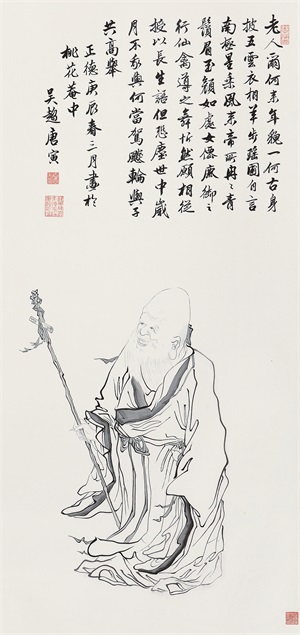 老人爾何来年貌一何古身
披五雲衣相羊步瑤圃自言
南極星乘風来帝所冉冉青
鬚眉玉顔如處女僊麻御之
行仙禽導之舞忻然願相從
授以長生語但恐塵世中歲
月不我與何當駕飈輪與子
共高舉
正德庚辰春三月畫於
桃花菴中
吴趨唐寅